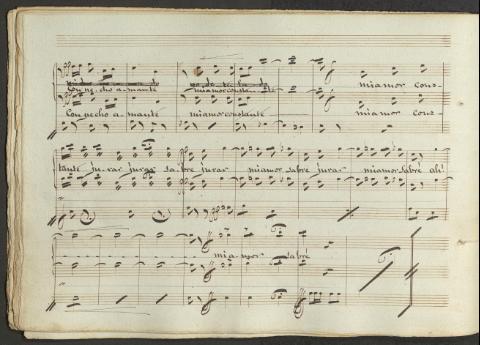 Con pecho a-mante mi amor constante mi amor cons-
Con pecho a-mante mi amor constante mi amor cons-
tante ju-rar jurar sabre jurar mi amor sabre jurar mi amor sabre ah!
mi amor sabre